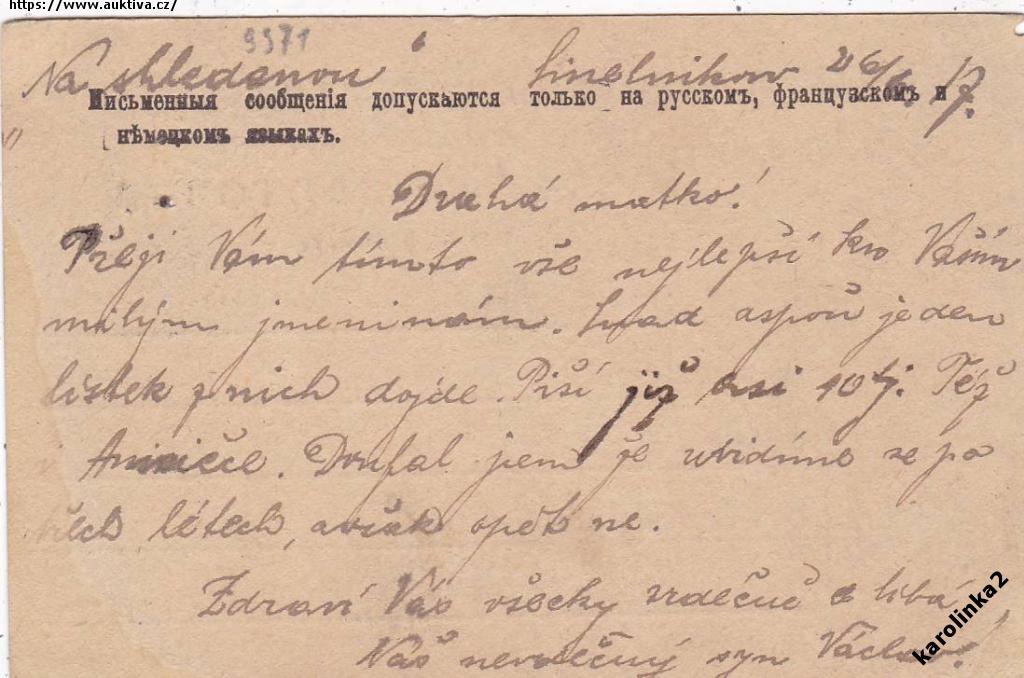 https://www.auktiva.cz/
9971
Na shledanou Sinelnikow 26/6 17.
Письменныя сообщенія допускаются только на русскомъ, французскомъ и
нѣмецкомъ языкахъ.
Drahá matko!
Přeji Vám tímto vše nejlepší kro Vašim
milým jmeninám. Snad aspoň jeden
lístek z nich dojde. Píši již asi 10tý. Též
Aninčce. Doufal jsem že uvidíme se po
třech létech, avšak opět ne.
Zdraví Vás všecky srdečně a líbá
Váš nevděčný syn Václav!
karolinka2